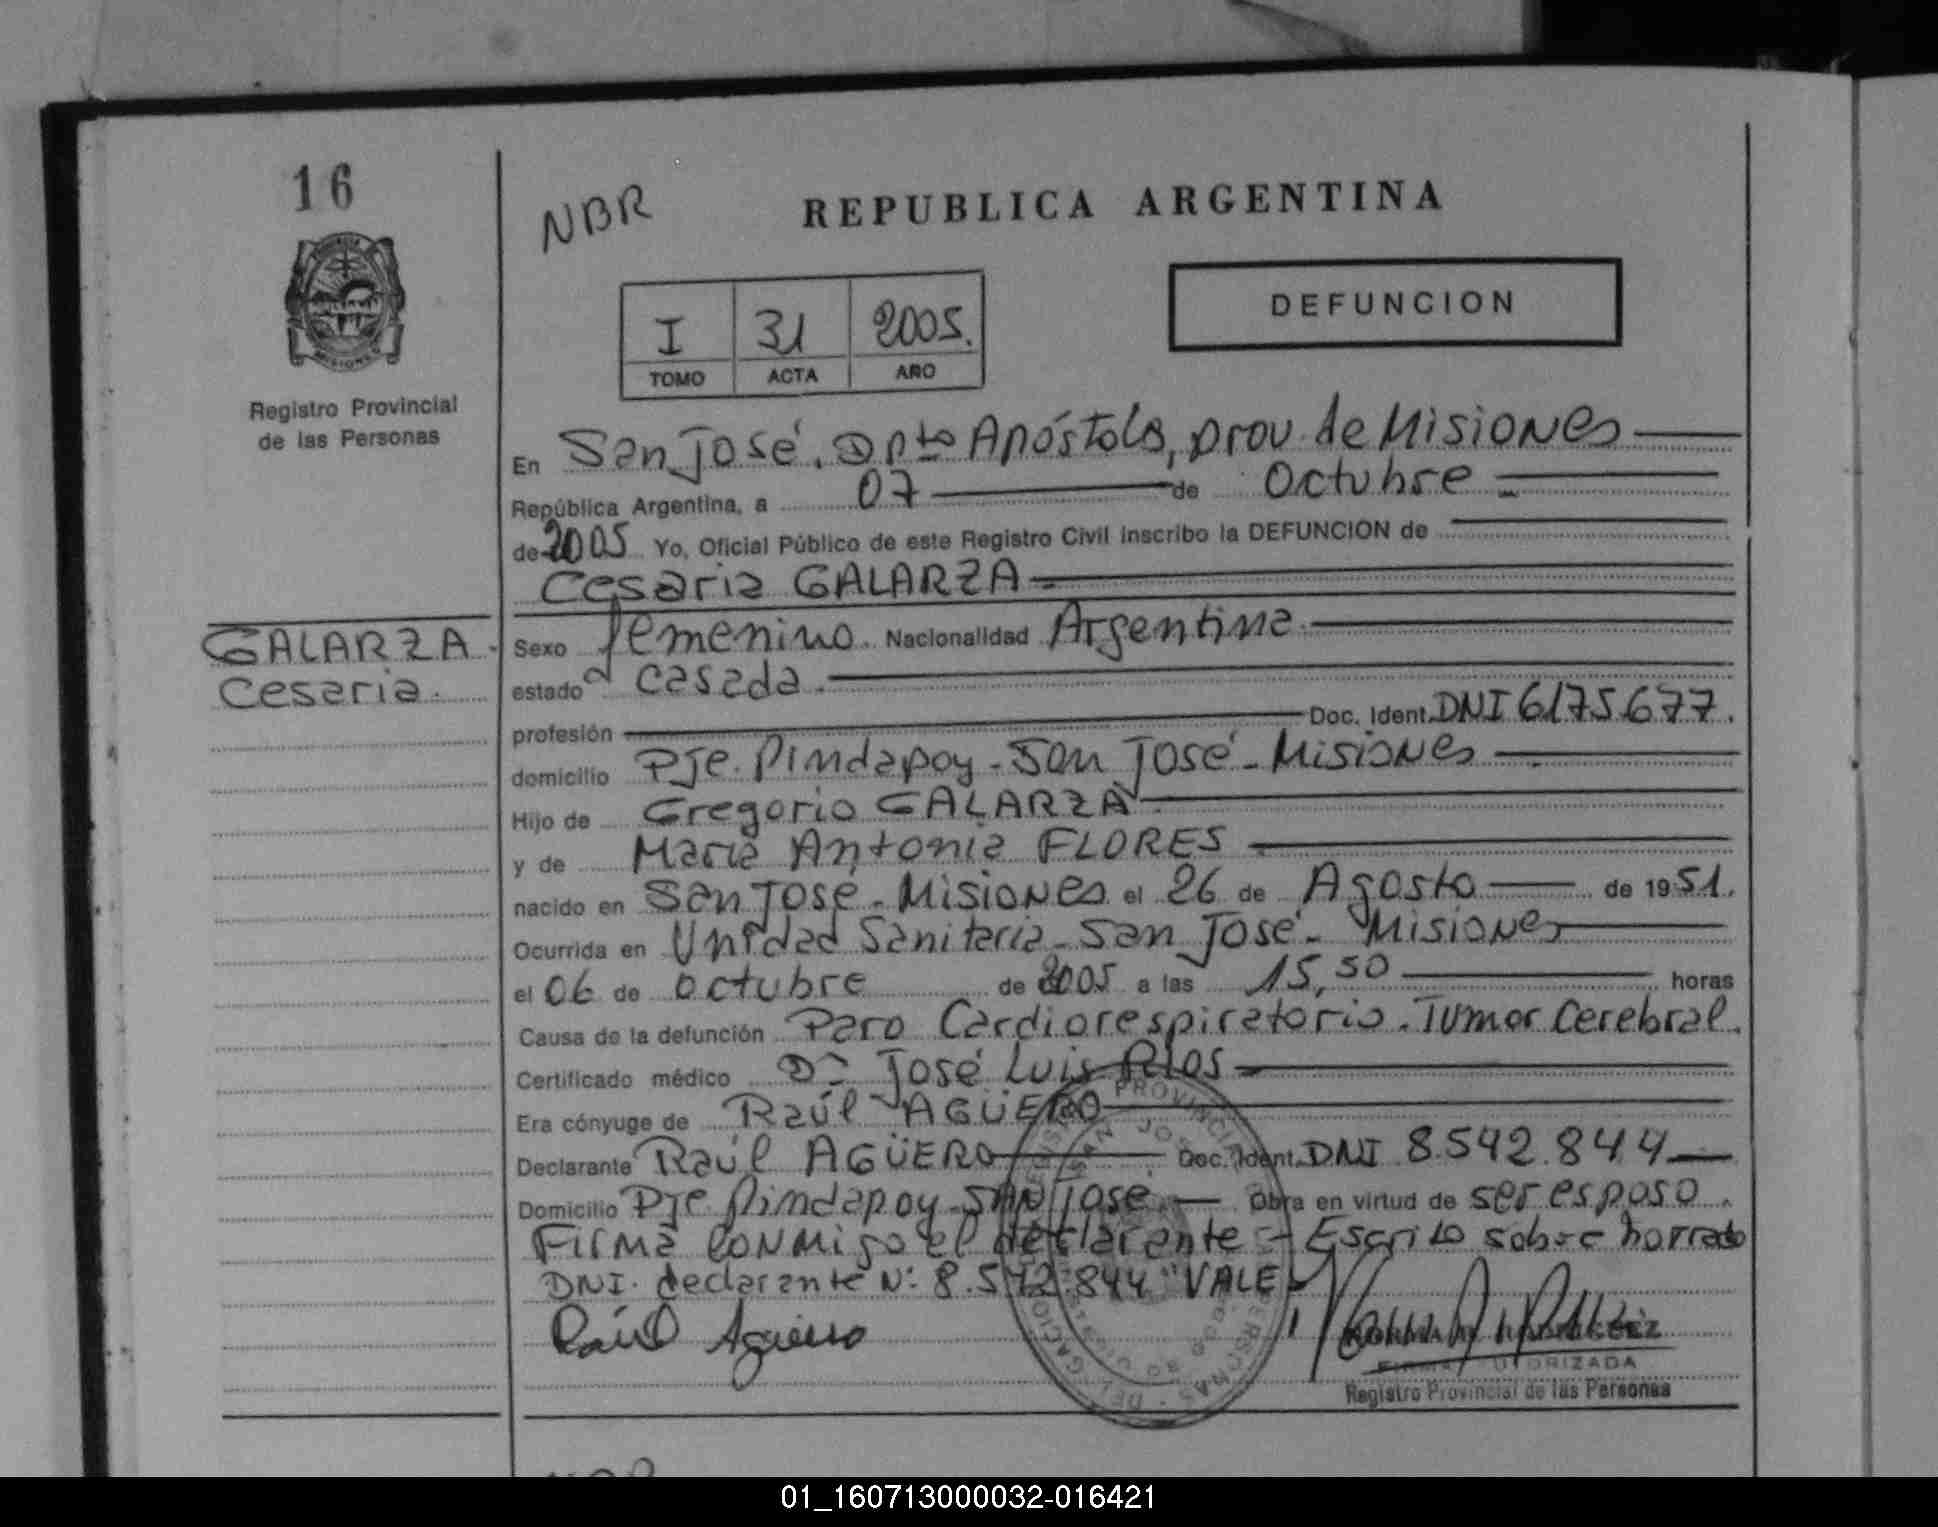 16
NBR
REPUBLICA ARGENTINA
DEFUNCION
I 31 2005.
TOMO ACTA AÑO
MISIONES
Registro Provincial
de las Personas
En San José. Dpto Apóstoles, prov. de Misiones
República Argentina, a 07 de Octubre
de 2005 Yo, Oficial Público de este Registro Civil inscribo la DEFUNCION de
Cesaria GALARZA
GALARZA.
Cesaria.
Sexo femenino. Nacionalidad Argentina.
estado casada.
profesión Doc. Ident. DNI 6175677.
domicilio Pje. Pindapoy - San José - Misiones
Hijo de Gregorio GALARZA
y de María Antonia FLORES
nacido en San José - Misiones el 26 de Agosto de 1951.
Ocurrida en Unidad Sanitaria - San José - Misiones
el 06 de octubre de 2005 a las 15,50 horas
Causa de la defunción Paro Cardiorespiratorio. Tumor Cerebral.
Certificado médico Dr José Luis Rios
Era cónyuge de Raúl AGÜERO
Declarante Raúl AGÜERO Doc. Ident. DNI 8.542.844
Domicilio Pje Pindapoy - SAN José. Obra en virtud de ser esposo.
Firma conmigo el declarante - Escrito sobre borrado
DNI. declarante Nº 8.542.844 "VALE"
Raúl Agüero
FIRMA AUTORIZADA
Registro Provincial de las Personas
01_160713000032-016421